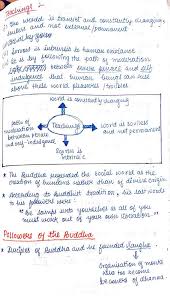 Teachings:
(i) The world is transient and constantly changing,
soulless and not external/permanent
(iii) Sorrow is inherent to human existence
(iv) It is by following the path of moderation
between severe penance and self
indulgence that human beings can rise
above these world pleasures/
World is constantly
changing
Teachings
path of
moderation
between penance
and self-indulgence
World is soulless
and not permanent
Sorrow is
intrinsic
* The Buddha regarded the social world as the
creation of humans rather than of divine origin
* According to Buddhist tradition, his last words
to his followers were:
"Be lamps unto yourselves as all of you
must work out of your own liberation."
Followers of the Buddha
* Disciples of Buddha and he founded sangha
Organisation of monks
who too became
teachers of dhamma